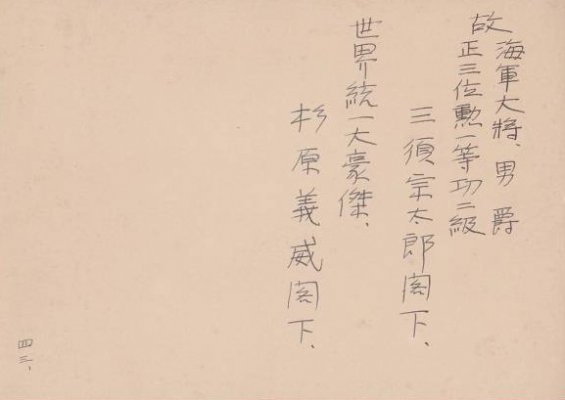 故海軍大将、男爵
正三位勲一等功二級
三須宗太郎閣下、
世界統一大豪傑、
杉原義威閣下、
四三、